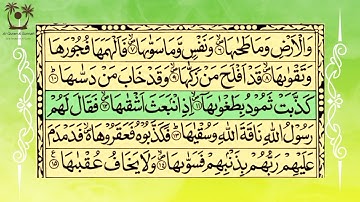 وَالْاَرْضِ وَمَا طَحٰىهَا ۪ۙ۝۶ وَنَفْسٍ وَّمَا سَوّٰىهَا ۪ۙ۝۷ فَاَلْهَمَهَا فُجُوْرَهَا
وَتَقْوٰىهَا ۪ۙ۝۸ قَدْ اَفْلَحَ مَنْ زَكّٰىهَا ۪ۙ۝۹ وَقَدْ خَابَ مَنْ دَسّٰىهَا ؕ۝۱۰
كَذَّبَتْ ثَمُوْدُ بِطَغْوٰىهَاۤ ۪ۙ۝۱۱ اِذِ انْۢبَعَثَ اَشْقٰىهَا ۪ۙ۝۱۲ فَقَالَ لَهُمْ
رَسُوْلُ اللّٰهِ نَاقَةَ اللّٰهِ وَسُقْيٰهَا ؕ۝۱۳ فَكَذَّبُوْهُ فَعَقَرُوْهَا ۪ۙ فَدَمْدَمَ
عَلَيْهِمْ رَبُّهُمْ بِذَنْۢبِهِمْ فَسَوّٰىهَا ۪ۙ۝۱۴ وَلَا يَخَافُ عُقْبٰهَا ۝۱۵